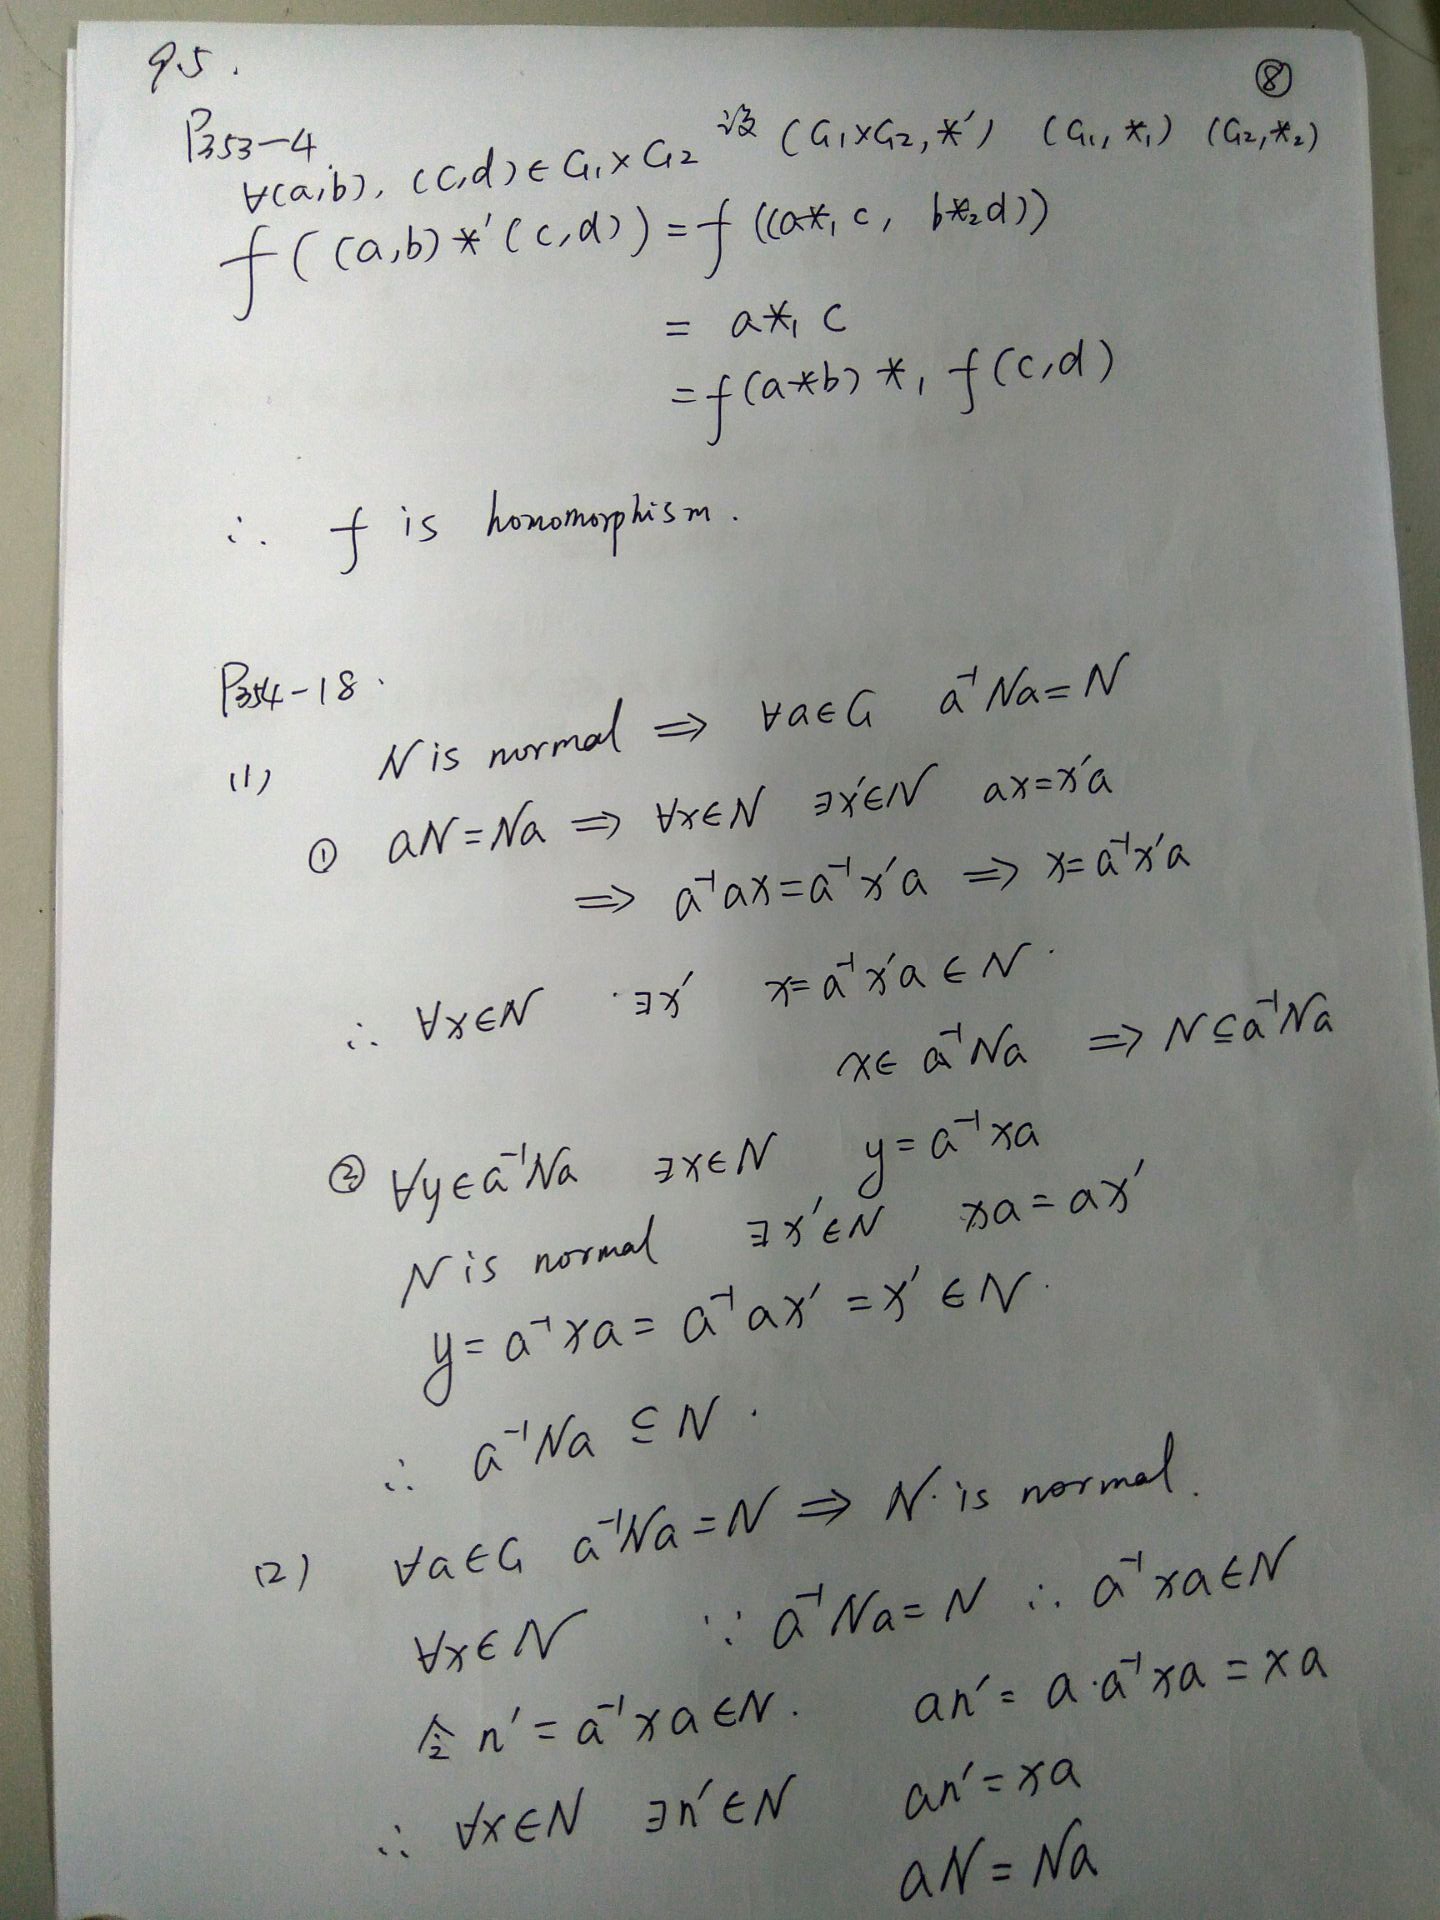 9.5.
⑧
P353-4
设 (G₁×G₂, *′) (G₁, *₁) (G₂, *₂)
∀(a,b), (c,d)∈G₁×G₂
f((a,b)*′(c,d)) = f((a*₁c, b*₂d))
= a*₁c
= f(a*b) *₁ f(c,d)
∴ f is homomorphism.
P354-18.
(1) N is normal ⇒ ∀a∈G a⁻¹Na=N
① aN=Na ⇒ ∀x∈N ∃x′∈N ax=x′a
⇒ a⁻¹ax=a⁻¹x′a ⇒ x=a⁻¹x′a
∴ ∀x∈N ∃x′ x=a⁻¹x′a∈N.
x∈a⁻¹Na ⇒ N⊆a⁻¹Na
② ∀y∈a⁻¹Na ∃x∈N y=a⁻¹xa
N is normal ∃x′∈N xa=ax′
y=a⁻¹xa=a⁻¹ax′=x′∈N.
∴ a⁻¹Na⊆N.
(2) ∀a∈G a⁻¹Na=N ⇒ N is normal.
∀x∈N ∵ a⁻¹Na=N ∴ a⁻¹xa∈N
令 n′=a⁻¹xa∈N. an′=a·a⁻¹xa=xa
∴ ∀x∈N ∃n′∈N an′=xa
aN=Na